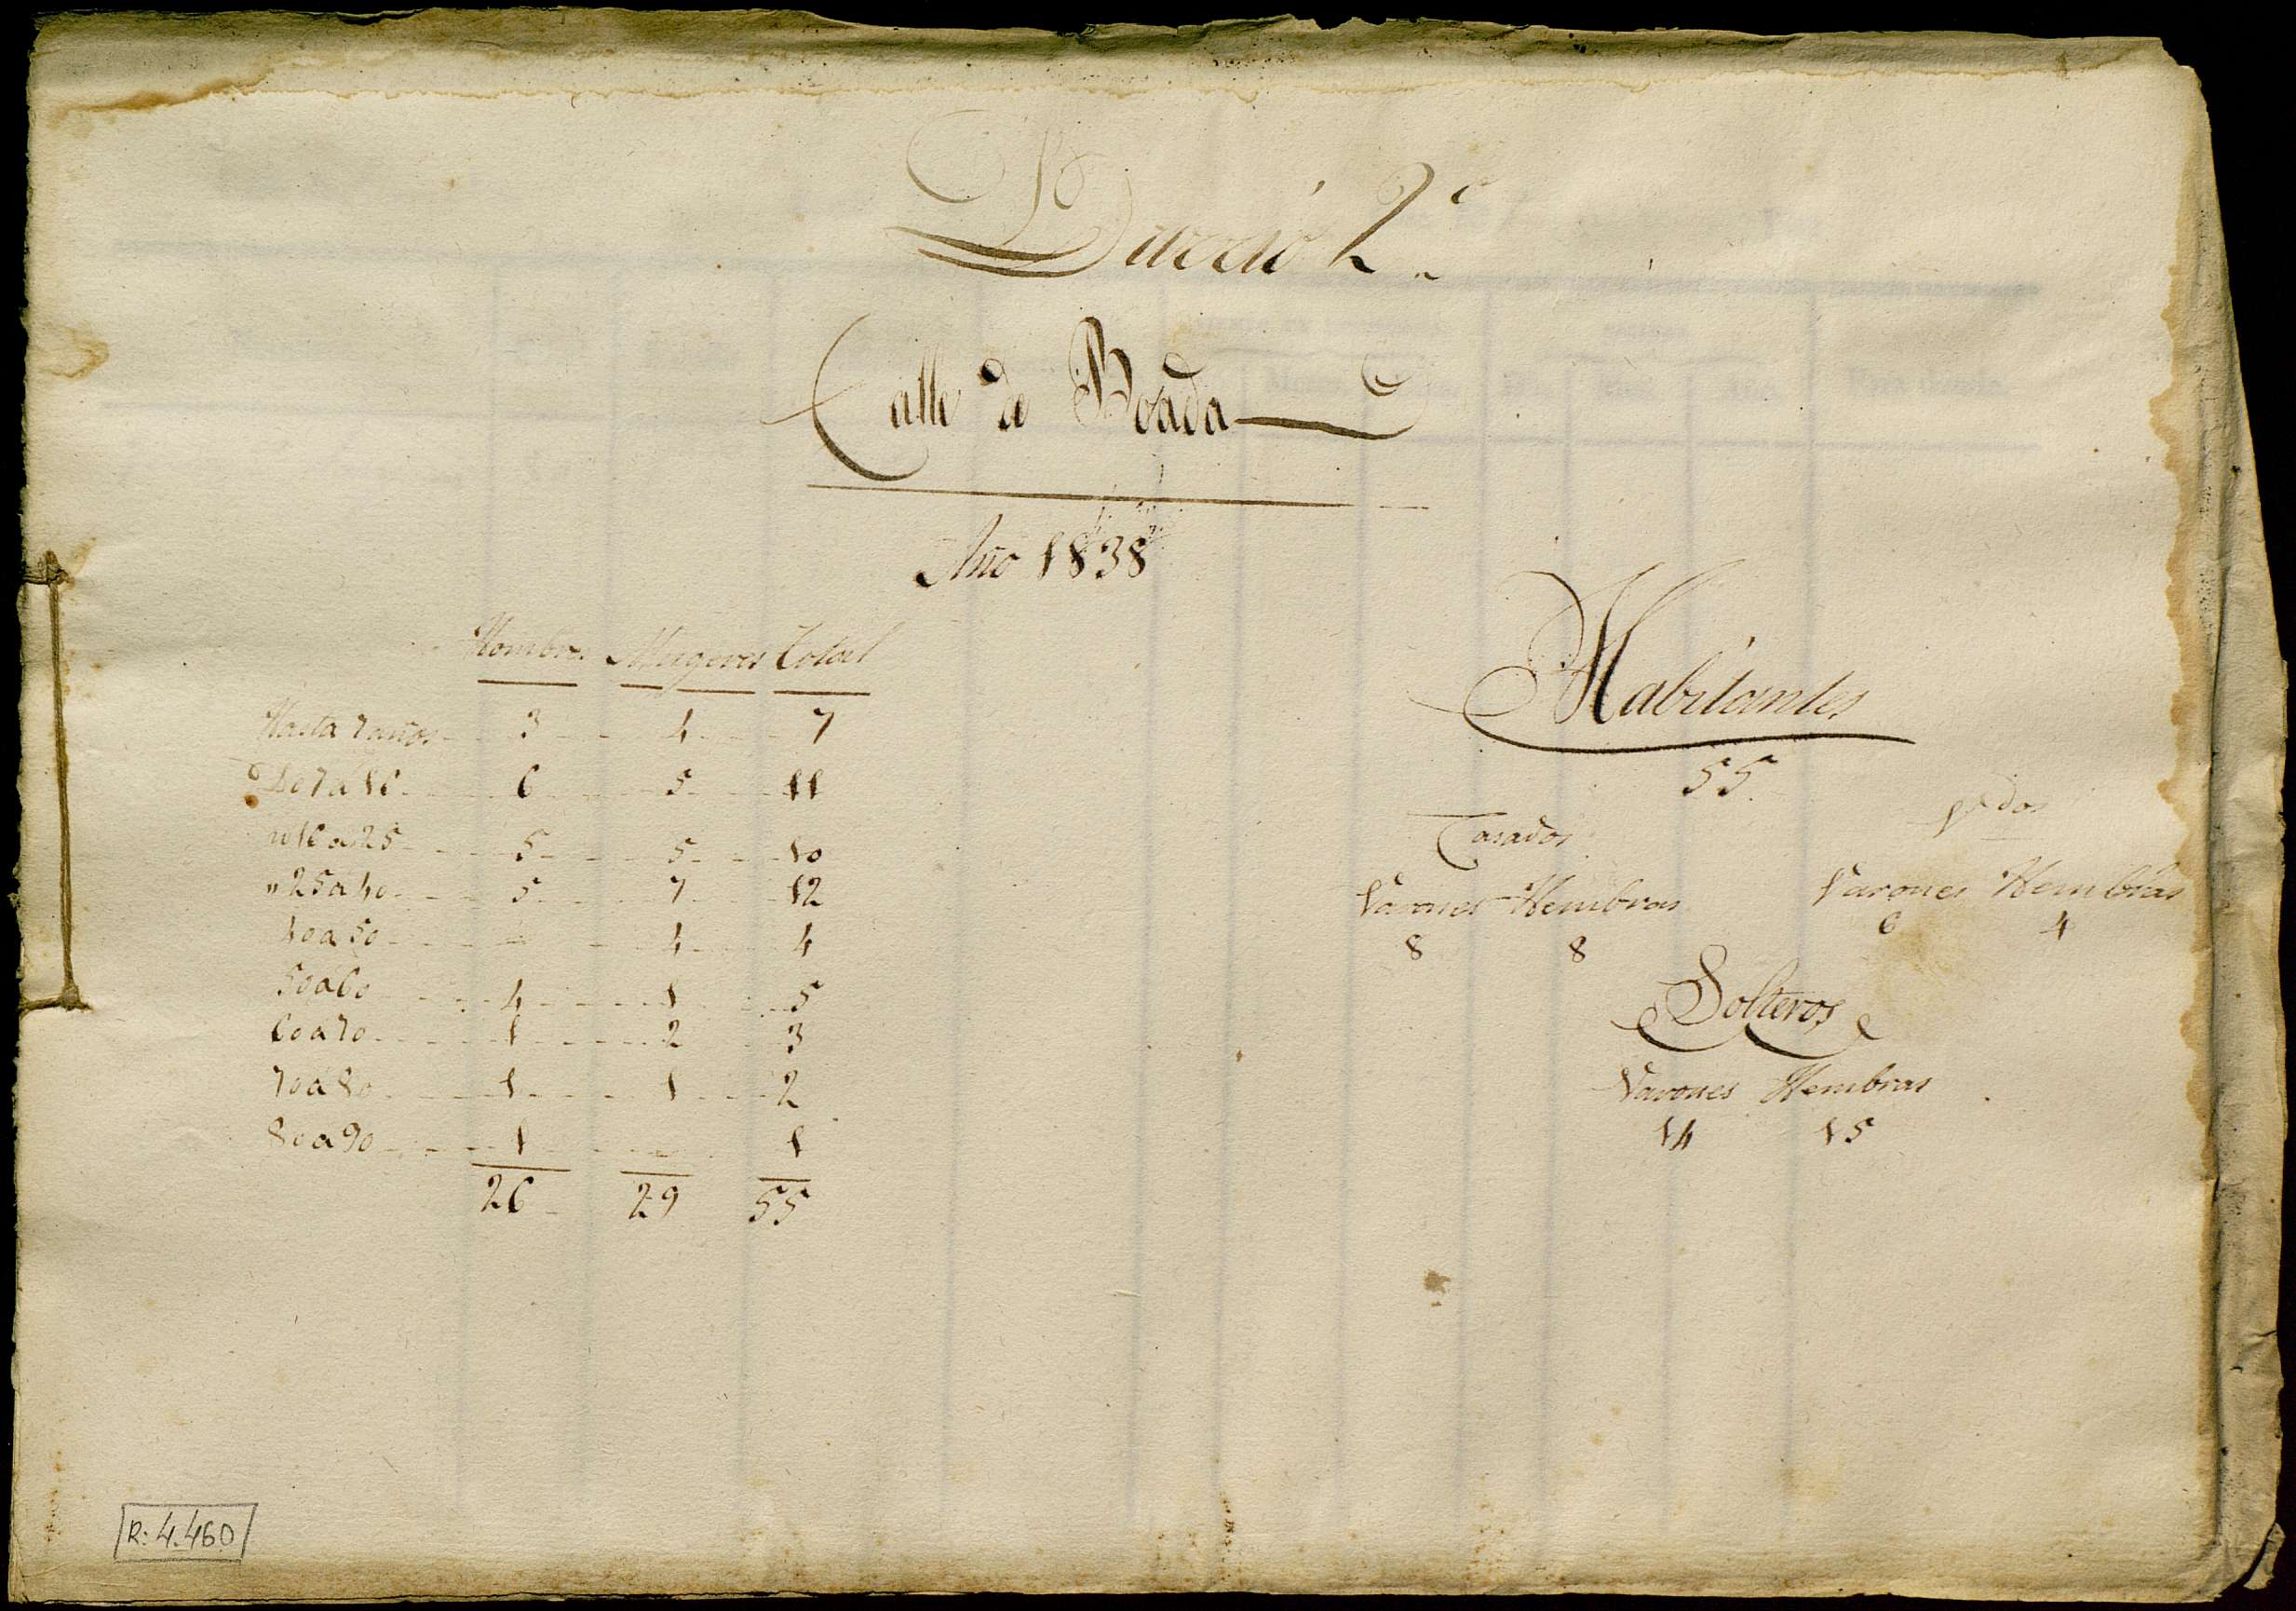 2ª
Calle de Boada
Año 1838
Hombres Mugeres Total
Hasta 7 años 3 4 7
De 7 a 16 6 5 11
" 16 a 25 5 5 10
" 25 a 40 5 7 12
40 a 50 - 4 4
50 a 60 4 1 5
60 a 70 1 2 3
70 a 80 1 1 2
80 a 90 1 - 1
26 29 55
Habitantes
55
Casados
Varones Hembras
8 8
Vdos
Varones Hembras
6 4
Solteros
Varones Hembras
14 15
R: 4.460